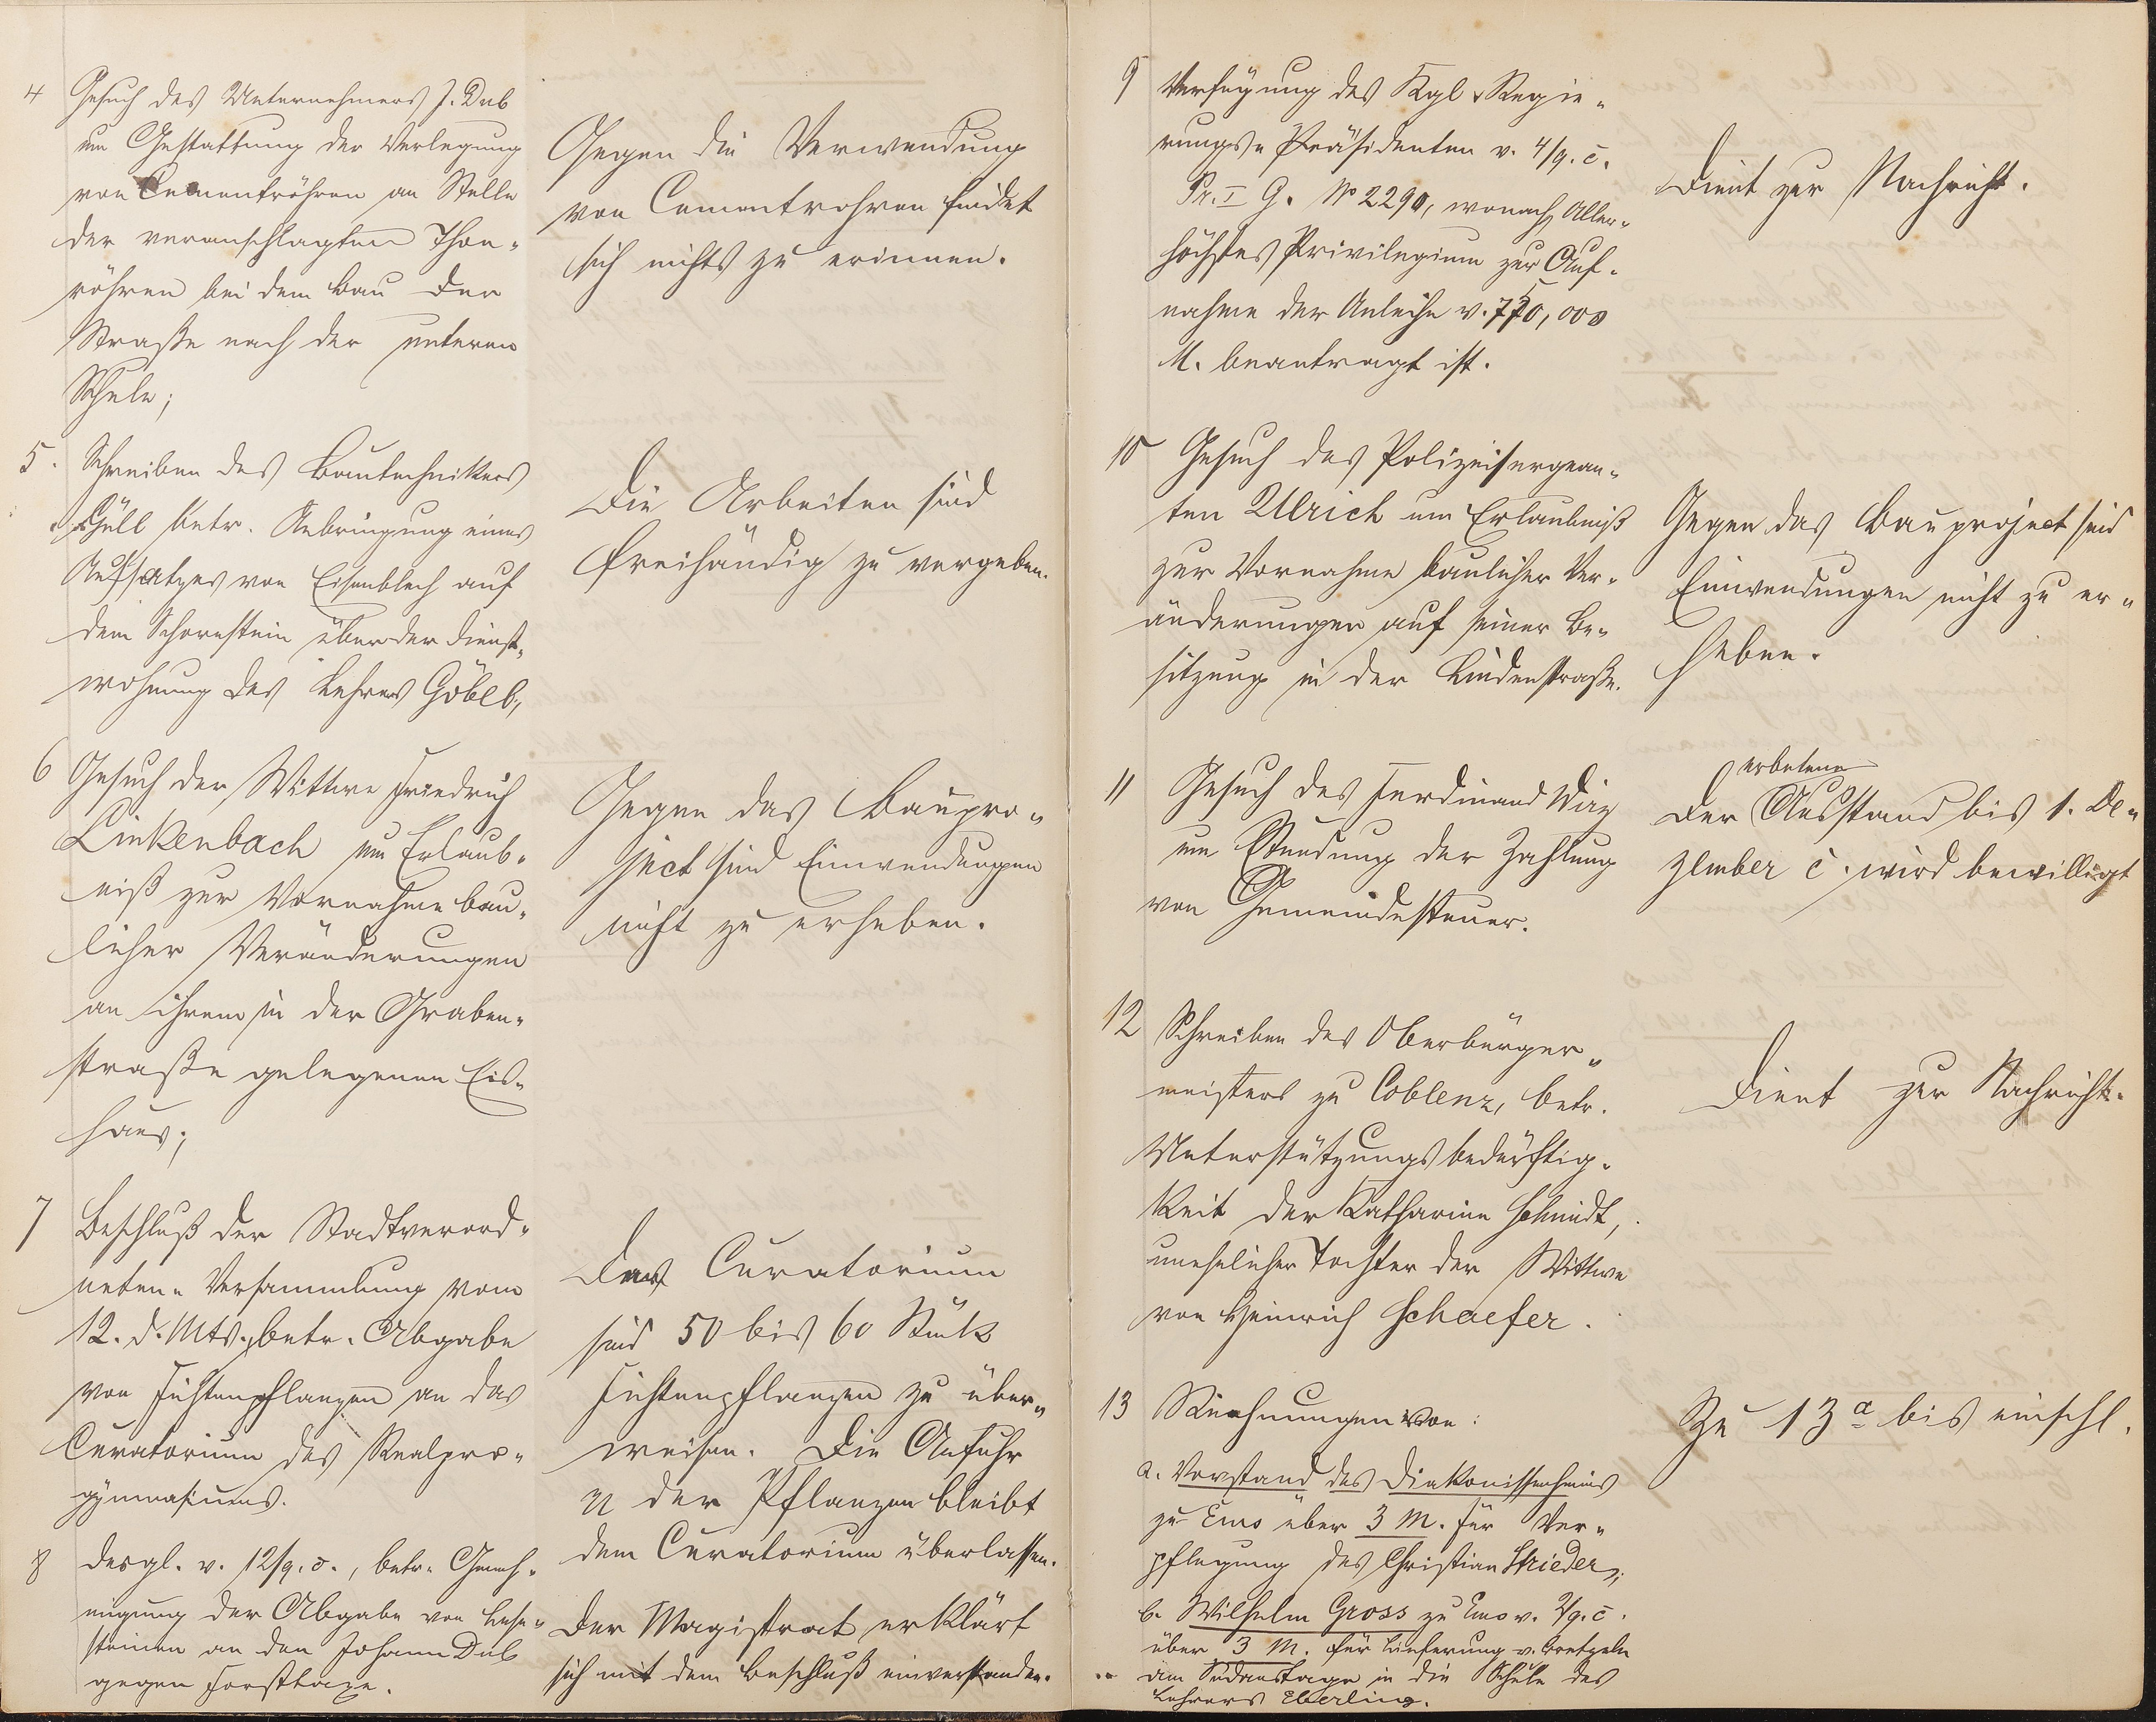 4 Gesuch des Unternehmers J. Dub
um Gestattung der Verlegung
von Cementröhren an Stelle
der veranschlagten Thon-
röhren bei dem Bau der
Straße nach der unteren
Schule;
Gegen die Verwendung
von Cementrohren findet
sich nichts zu erinnern.
5. Schreiben des Bautechnikers
betr. Anbringung eines
Aufsatzes von Eisenblech auf
dem Schornstein über der Dienst-
wohnung des Lehrers Göbel,
Die Arbeiten sind
freihändig zu vergeben.
6 Gesuch der Wittwe Friedrich
Linkenbach um Erlaub-
niß zur Vornahme bau-
licher Veränderungen
an ihrem in der Graben-
straße gelegenen Eis-
haus;
Gegen das Baupro-
ject sind Einwendungen
nicht zu erheben.
7 Beschluß der Stadtverord-
neten-Versammlung vom
12. d. Mts., betr. Abgabe
von Fichtenpflanzen an das
Curatorium des Realpro-
gymnasiums.
Das Curatorium
sind 50 bis 60 Stück
Fichtenpflanzen zu über-
weisen. Die Anfuhr
der Pflanzen bleibt
dem Curatorium überlassen.
8 desgl. v. 12/9. c., betr. Geneh-
migung der Abgabe von Lese-
steinen an den Johann Dub
gegen Forsttaxe.
Der Magistrat erklärt
sich mit dem Beschluß einverstanden.
9 Verfügung des Kgl. Regie-
rungs-Präsidenten v. 4/9. c.
Pr. I G. No 2290, wonach Aller-
höchstes Privilegium zur Auf-
nahme der Anleihe v. 750,000
M. beantragt ist.
Dient zur Nachricht.
10 Gesuch des Polizeisergean-
ten Ulrich um Erlaubniß
zur Vornahme baulicher Ver-
änderungen auf seiner Be-
sitzung in der Lindenstraße.
Gegen das Bauproject sind
Einwendungen nicht zu er-
heben.
11 Gesuch des Ferdinand
um Stundung der Zahlung
von Gemeindesteuer.
erbetene
Der Ausstand bis 1. De-
zember c. wird bewilligt
12 Schreiben des Oberbürger-
meisters zu Coblenz, betr.
Unterstützungsbedürftig-
keit der Katharina Schmidt,
unehelicher Tochter der Wittwe
von Heinrich Schaefer.
Dient zur Nachricht.
13 Rechnungen von:
a. Vorstand des Diakonissenheims
zu Ems über 3 M. für Ver-
pflegung des Christian Strieder;
b. Wilhelm Gross zu Ems v. 2/9. c.
über 3 M. für Lieferung v. Bretzeln
am Sedanstage in die Schule des
Lehrers Eberling.
Zu 13 a bis einschl.